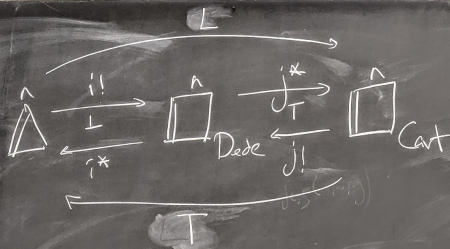 L
i! j*
⊥ ⊤
i* Dede j! Cart
T